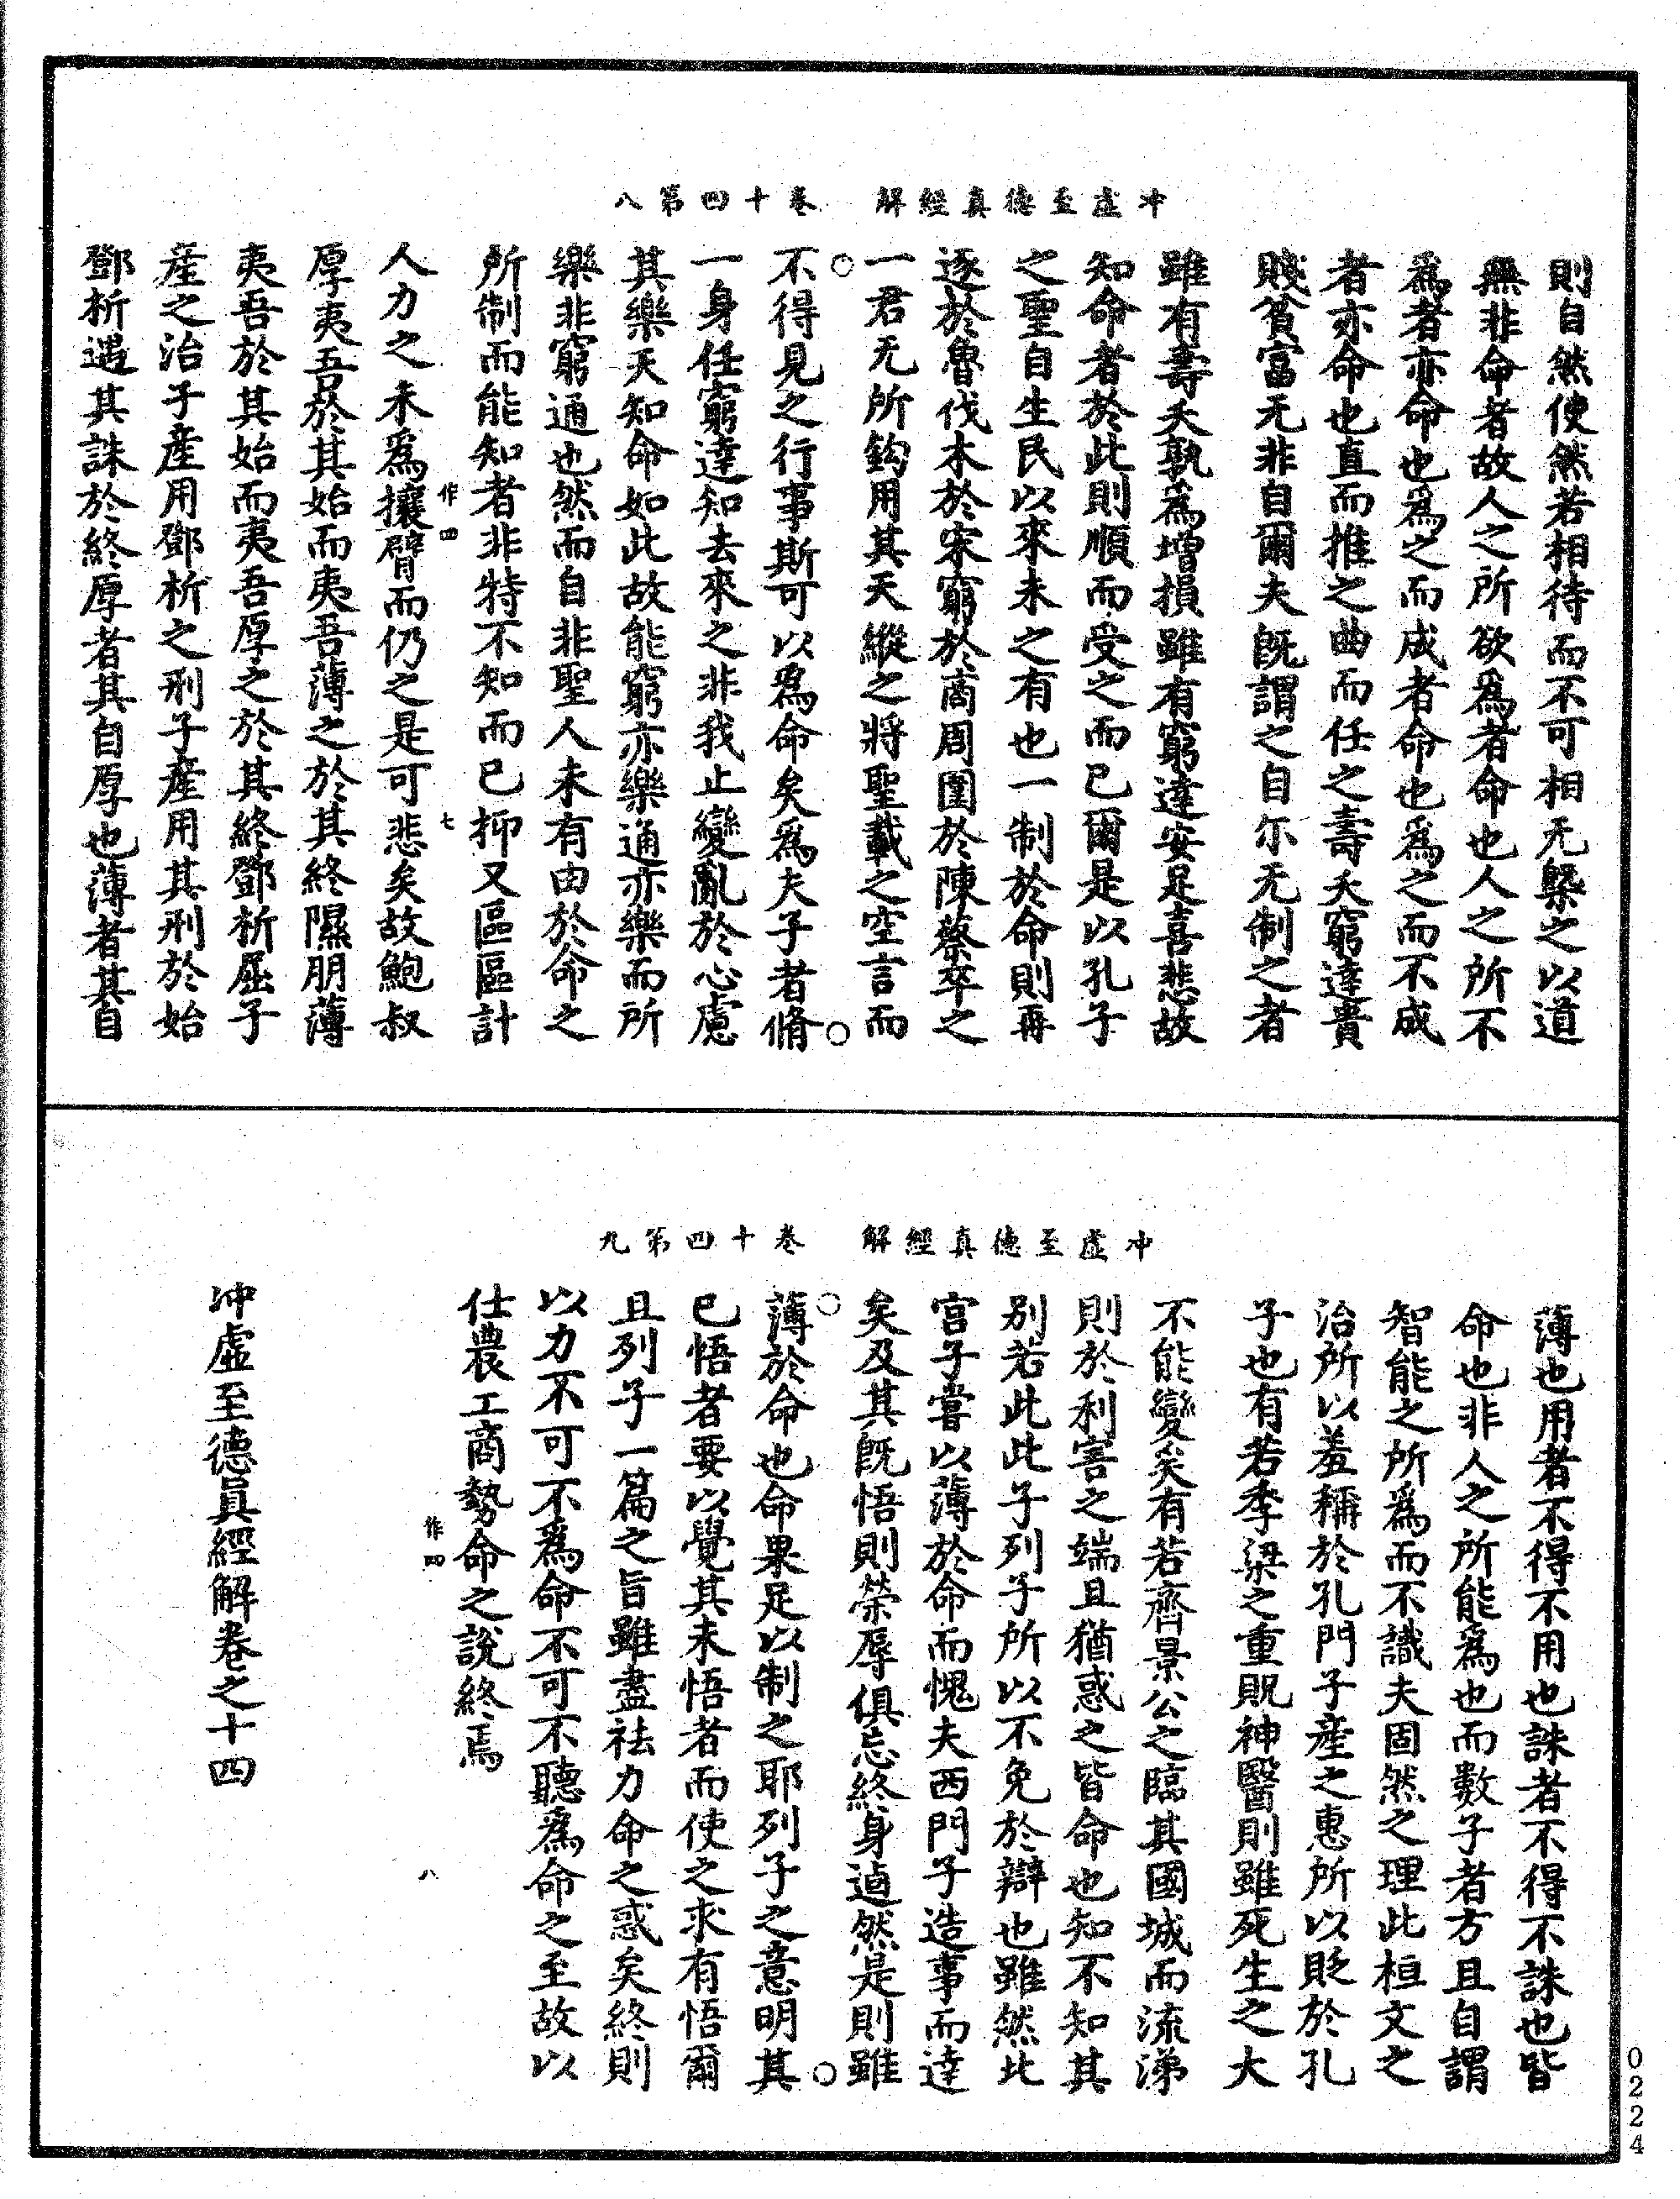 冲虛至德真經解　卷十四第八
則自然使然若相待而不可相无槩之以道
無非命者故人之所欲爲者命也人之所不
爲者亦命也爲之而成者命也爲之而不成
者亦命也直而推之曲而任之壽夭窮達貴
賤貧富无非自爾夫旣謂之自尓无制之者
雖有壽夭孰爲增損雖有窮達安足喜悲故
知命者於此則順而受之而已爾是以孔子
之聖自生民以來未之有也一制於命則再
逐於魯伐木於宋窮於商周圍於陳蔡卒之
一君无所鈎用其天縱之將聖載之空言而
不得見之行事斯可以爲命矣爲夫子者脩
一身任窮達知去來之非我止變亂於心慮
其樂天知命如此故能窮亦樂通亦樂而所
樂非窮通也然而自非聖人未有由於命之
所制而能知者非特不知而已抑又區區計
作四　七
人力之未爲攘臂而仍之是可悲矣故鮑叔
厚夷吾於其始而夷吾薄之於其終隰朋薄
夷吾於其始而夷吾厚之於其終鄧析屈子
產之治子產用鄧析之刑子產用其刑於始
鄧析遇其誅於終厚者其自厚也薄者其自
冲虛至德真經解　卷十四第九
薄也用者不得不用也誅者不得不誅也皆
命也非人之所能爲也而數子者方且自謂
智能之所爲而不識夫固然之理此桓文之
治所以羞稱於孔門子產之惠所以貶於孔
子也有若季梁之重貺神醫則雖死生之大
不能變矣有若齊景公之臨其國城而流涕
則於利害之端且猶惑之皆命也知不知其
别若此此子列子所以不免於辯也雖然北
宮子嘗以薄於命而愧夫西門子造事而達
矣及其旣悟則榮辱俱忘終身逌然是則雖
薄於命也命果足以制之耶列子之意明其
已悟者要以覺其未悟者而使之求有悟爾
且列子一篇之旨雖盡祛力命之惑矣終則
以力不可不爲命不可不聽爲命之至故以
仕農工商勢命之說終焉
作四　八
冲虛至德眞經解卷之十四
0224